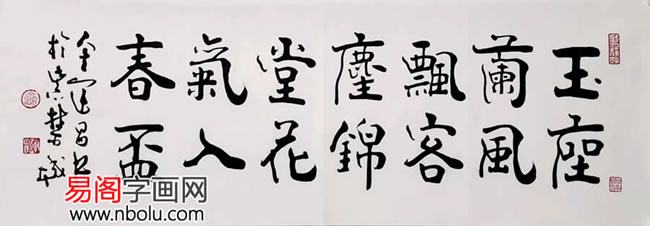 玉座
蘭風
飄客
塵錦
堂花
氣入
春盃
金運昌書
易阁字画网
www.nbolu.com